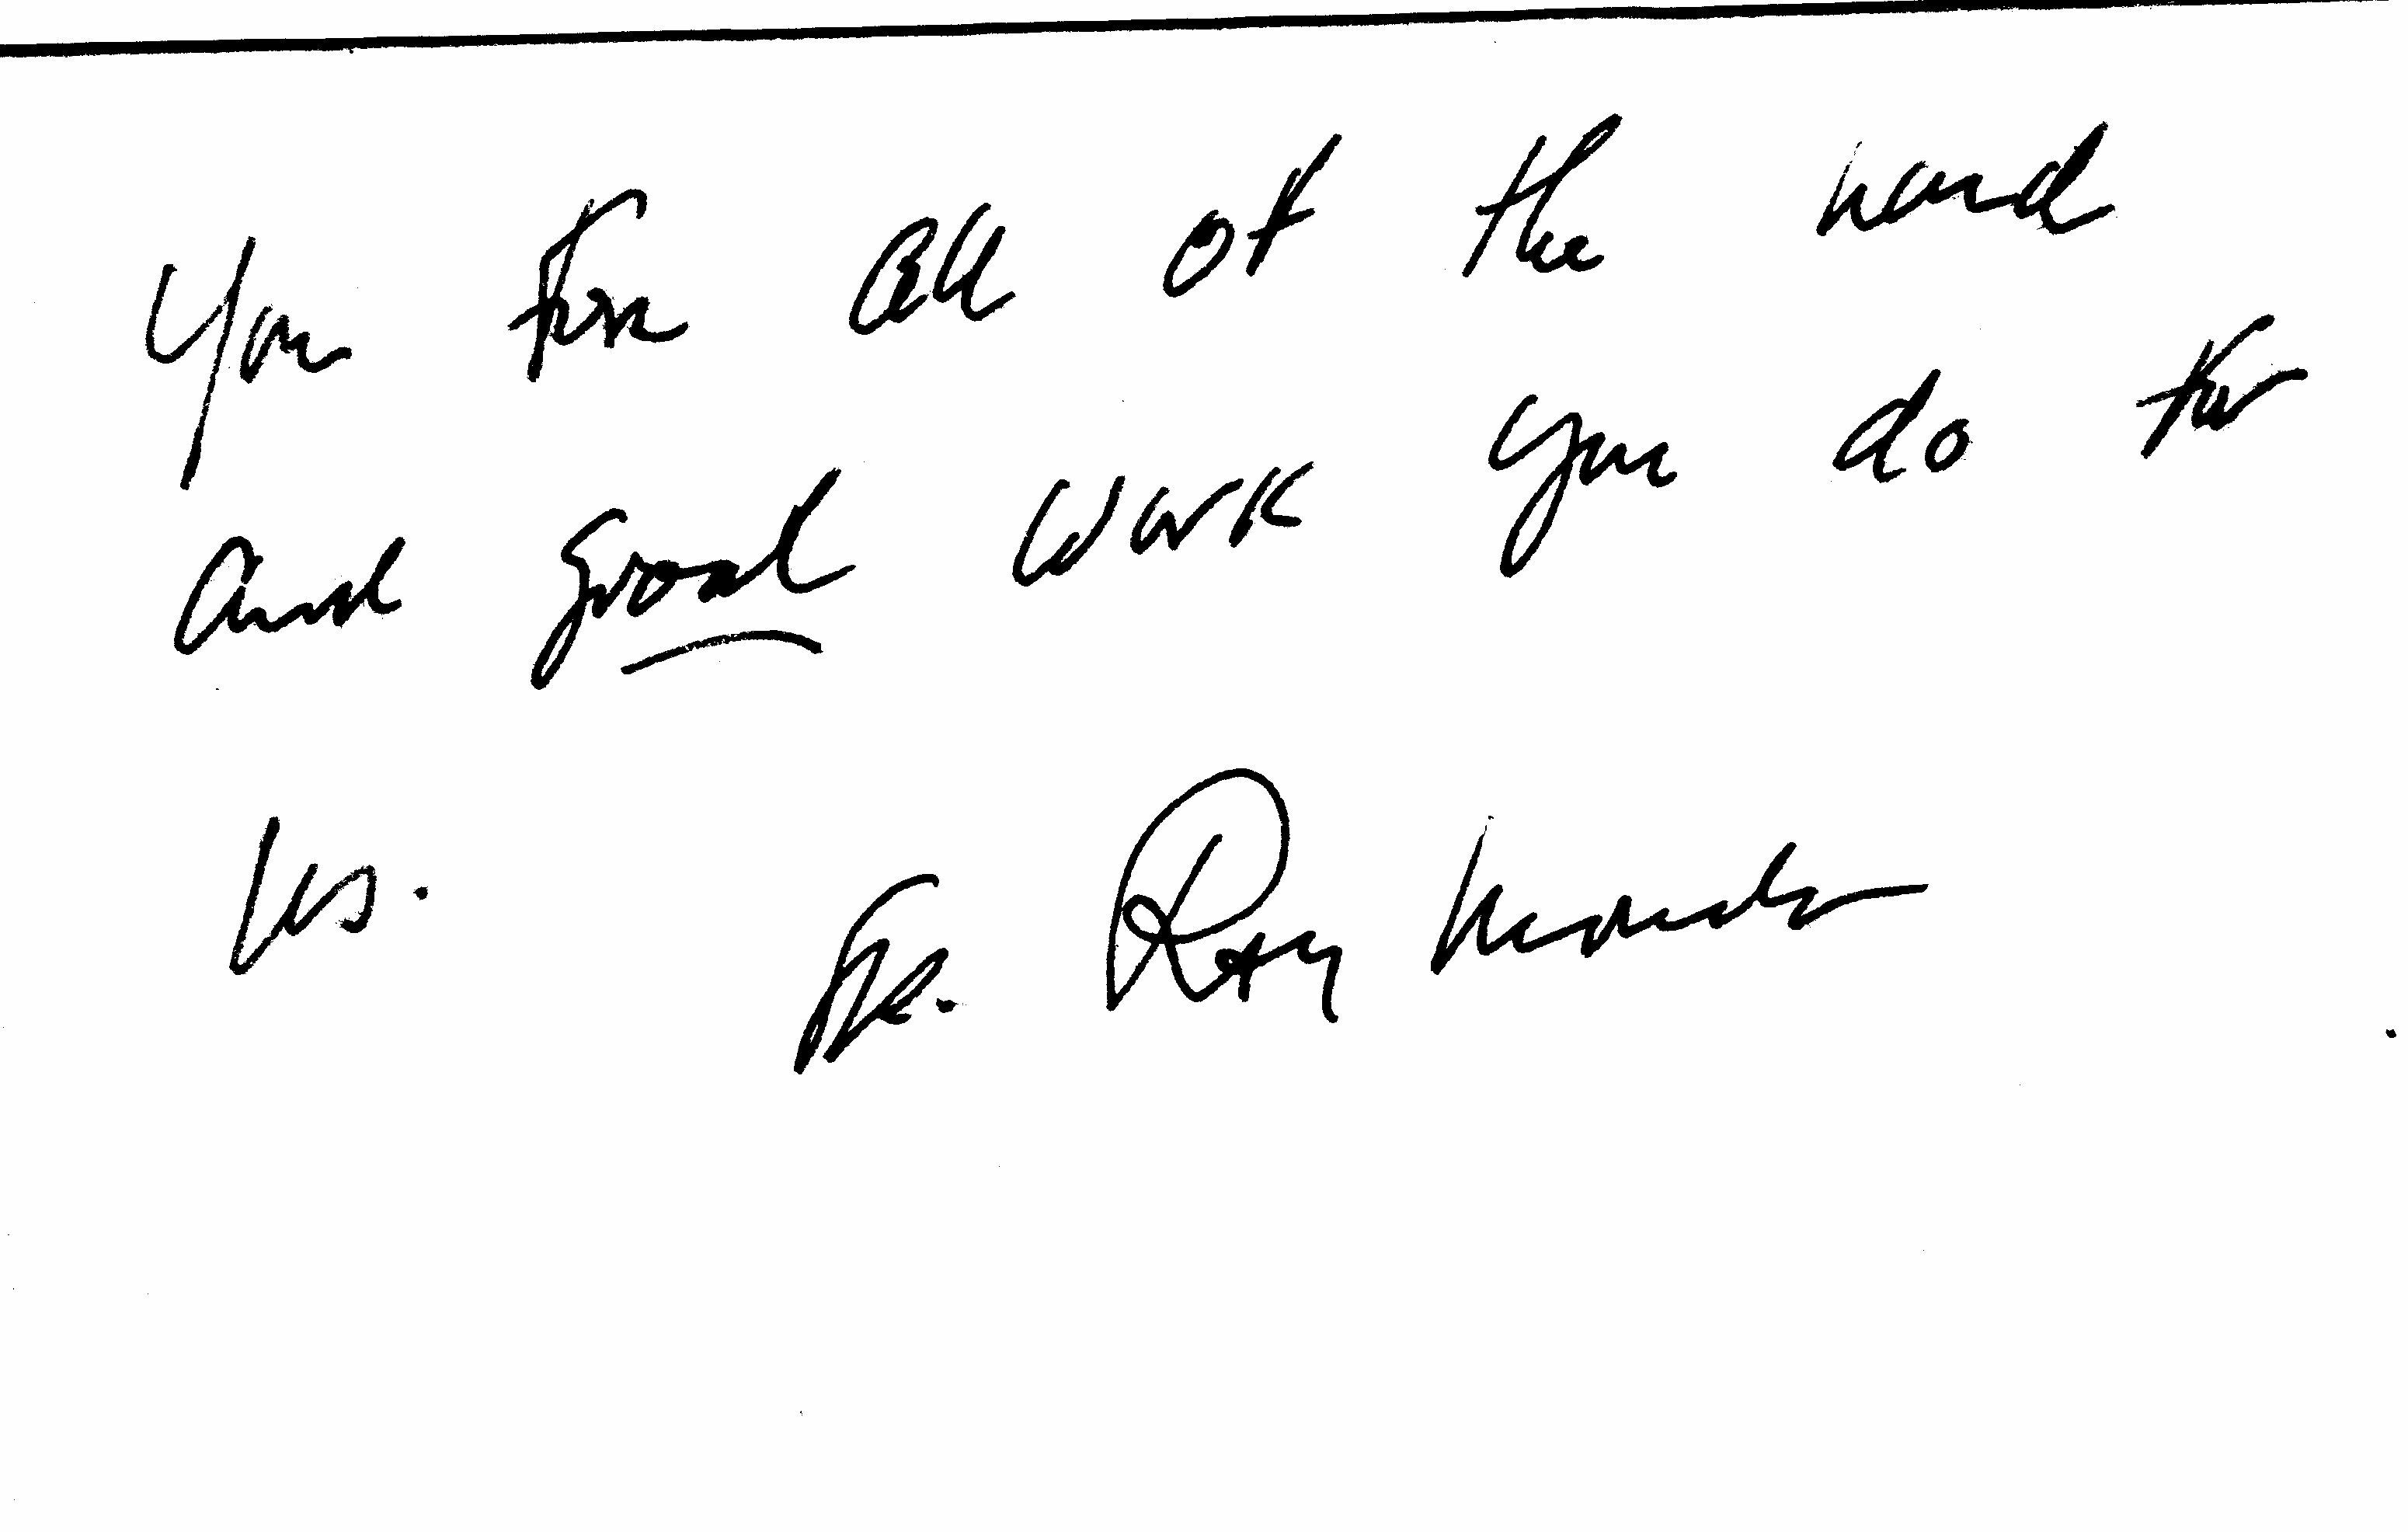 You for all of the hard
and good work you do for
us.
Fr. Ray